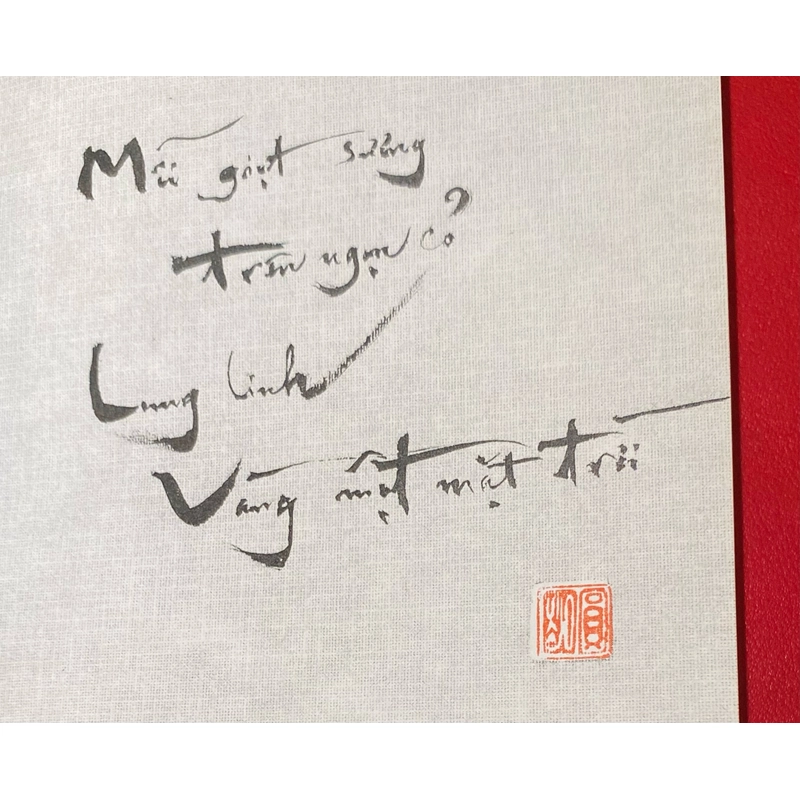 Mỗi giọt sương
trên ngọn cỏ
Lung linh
Vầng một mặt trời